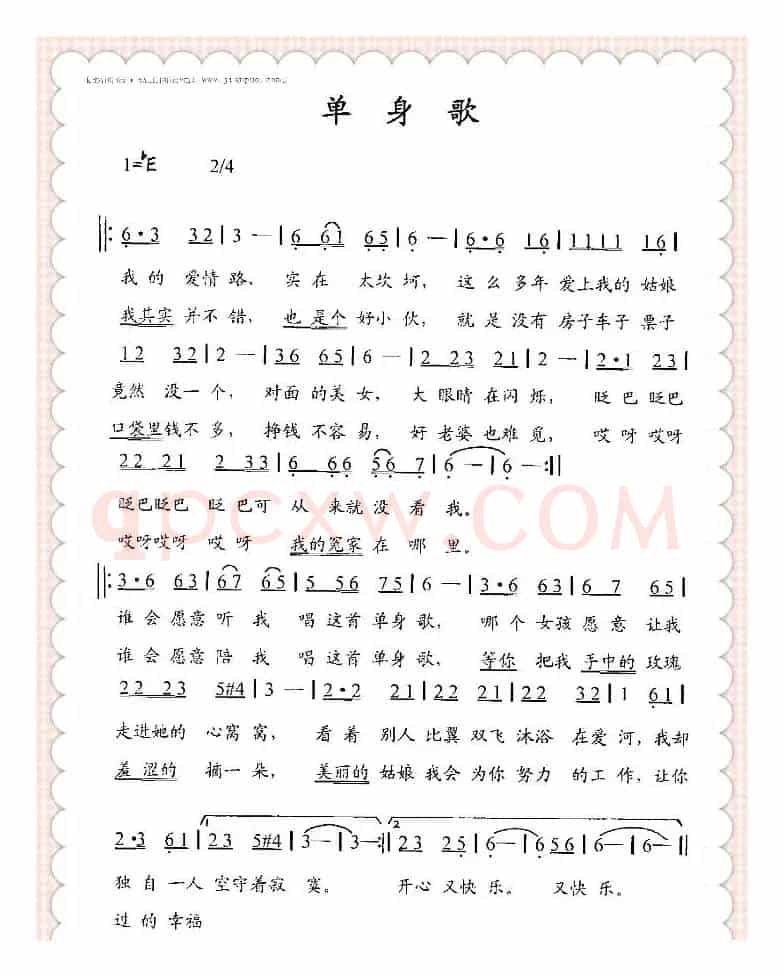 www.jianpuo.com
单身歌
1=♭E 2/4
‖: 6·3 32 | 3 — | 6 61 65 | 6 — | 6·6 16 | 1111 16 |
我的 爱情路， 实在 太坎坷， 这么多年 爱上我的 姑娘
我其实 并不错， 也是个 好小伙， 就是没有 房子车子 票子
12 32 | 2 — | 36 65 | 6 — | 2 23 21 | 2 — | 2·1 23 |
竟然 没一个， 对面的美女， 大眼睛在闪烁， 眨巴眨巴
口袋里钱不多， 挣钱不容易， 好老婆也难觅， 哎呀哎呀
22 21 2 33 | 6 66 56 7 | 6 — | 6 — :‖
眨巴眨巴 眨巴可 从来就没看我。
哎呀哎呀 哎呀 我的冤家在哪里。
qpcxw.COM
‖: 3·6 63 | 67 65 | 5 56 75 | 6 — | 3·6 63 | 6 7 65 |
谁会愿意听我 唱这首单身歌， 哪个女孩愿意让我
谁会愿意陪我 唱这首单身歌， 等你 把我手中的 玫瑰
22 23 5#4 | 3 — | 2·2 21 | 22 23 | 22 32 | 1 61 |
走进她的 心窝窝， 看着 别人比翼双飞沐浴 在爱河，我却
羞涩的 摘一朵， 美丽的 姑娘我会为你努力 的工作，让你
2·3 61 | 23 5#4 | 3 — | 3 — :‖ 2 23 25 | 6 — | 656 | 6 — | 6 — ‖
独自一人 空守着寂寞。 开心又快乐。 又快乐。
过的幸福